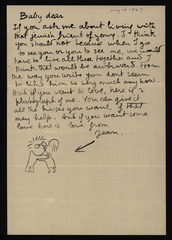 Baby dear
If you ask me about living with
that Jewish friend of yours, I think
you should not because when I go
to see you or you to see me, we would
have to live all three together and I
think that would be awkward. From
the way you write you dont seem
to like him so very much any how.
And if you want to love, here is a
photograph of me. You can give it
all the kisses you want, if that
may help. And if you want some
love here is love from
Jean.